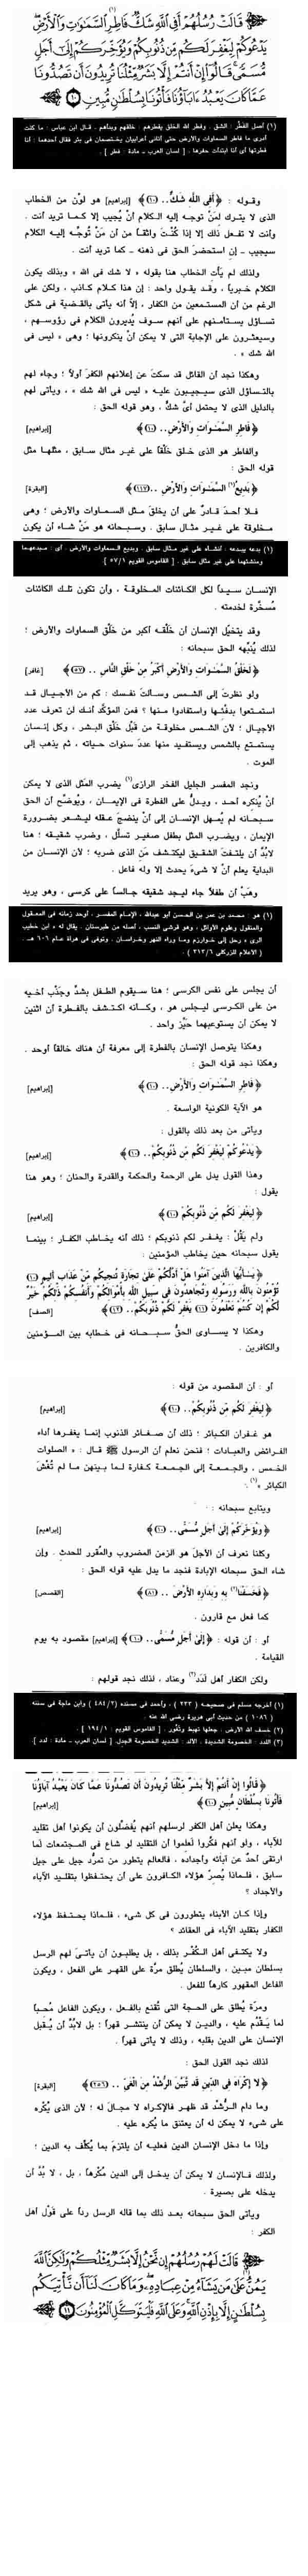 قَالَتْ رُسُلُهُمْ أَفِي اللَّهِ شَكٌّ فَاطِرِ السَّمَاوَاتِ وَالْأَرْضِ (١)
يَدْعُوكُمْ لِيَغْفِرَ لَكُم مِّن ذُنُوبِكُمْ وَيُؤَخِّرَكُمْ إِلَىٰ أَجَلٍ
مُّسَمًّى قَالُوا إِنْ أَنتُمْ إِلَّا بَشَرٌ مِّثْلُنَا تُرِيدُونَ أَن تَصُدُّونَا
عَمَّا كَانَ يَعْبُدُ آبَاؤُنَا فَأْتُونَا بِسُلْطَانٍ مُّبِينٍ ١٠
(١) أصل الفَطْر : الشق . وفطر الله الخلق يفطرهم : خلقهم وبدأهم . قال ابن عباس : ما كنت
أدرى ما فاطر السماوات والأرض حتى أتانى أعرابيان يختصمان فى بئر فقال أحدهما : أنا
فطرتها أى أنا ابتدأت حفرها . [ لسان العرب - مادة : فطر ] .
وقوله : ﴿ أَفِي اللَّهِ شَكٌّ .. (١٠) ﴾ [إبراهيم] هو لَوْن من الخطاب
الذى لا يترك لمَنْ توجه إليه الكلام أنْ يُجيب إلا كما تريد أنت .
وأنت لا تفعل ذلك إلا إذا كُنْتَ واثقاً من أن مَنْ تُوجِّه إليه الكلام
سيجيب - إن استحضرَ الحق فى ذهنه - كما تريد أنت .
ولذلك لم يَأْت الخطاب هنا بقوله « لا شك فى الله » وبذلك يكون
الكلام خبرياً ، وقد يقول واحد : إن هذا كلام كاذب ، ولكن على
الرغم من أن المستمعين من الكفار ، إلا أنه يأتى بالقضية فى شكل
تساؤل يستأمنهم على أنهم سوف يُديرون الكلام فى رؤوسهم ،
وسيعثرون على الإجابة التى لا يمكن أنْ ينكرونها ؛ وهى « ليس فى
الله شك » .
وهكذا نجد أن القائل قد سكتَ عن إعلانهم الكفرَ أولاً ؛ وجاء لهم
بالتساؤل الذى سيجيبون عليه « ليس فى الله شك » ، ويأتى لهم
بالدليل الذى لا يحتمل أىّ شكٍّ ، وهو قوله الحق :
﴿ فَاطِرِ السَّمَاوَاتِ وَالأَرْضِ .. (١٠) ﴾ [إبراهيم]
والفاطر هو الذى خلق خَلْقاً على غير مثال سابق ، مثلها مثل
قوله الحق :
﴿ بَدِيعُ(١) السَّمَاوَاتِ وَالأَرْضِ .. (١١٧) ﴾ [البقرة]
فلا أحدَ قادرٌ على أن يخلقَ مثل السماوات والأرض ؛ وهى
مخلوقة على غير مثال سابق . وسبحانه هو مَنْ شاء أن يكون
(١) بدعه يبدعه : أنشأه على غير مثال سابق . وبديع السماوات والأرض . أى : مبدعهما
ومنشئهما على غير مثال سابق . [ القاموس القويم ٥٧/١ ] .
الإنسان سيداً لكل الكائنات المخلوقة ، وأن تكون تلك الكائنات
مُسخَّرة لخدمته .
وقد يتخيَّل الإنسان أن خَلْقه أكبر من خَلْق السماوات والأرض ؛
لذلك يُنبِّهه الحق سبحانه :
﴿ لَخَلْقُ السَّمَاوَاتِ وَالأَرْضِ أَكْبَرُ مِنْ خَلْقِ النَّاسِ .. (٥٧) ﴾ [غافر]
ولو نظرتَ إلى الشمس وسألتَ نفسك : كم من الأجيال قد
استمتعوا بدفئها واستفادوا منها ؟ فمن المؤكّد أنك لن تعرف عدد
الأجيال ؛ لأن الشمس مخلوقة من قَبْل خَلْق البشر ، وكل إنسان
يستمتع بالشمس ويستفيد منها عدد سنوات حياته ، ثم يذهب إلى
الموت .
ونجد المفسر الجليل الفخر الرازى(١) يضرب المثل الذى لا يمكن
أنْ يُنكِره أحد ، ويدلُّ على الفطرة فى الإيمان ، ويُوضّح أن الحق
سبحانه لم يُمهل الإنسان إلى أنْ ينضجَ عقله ليشعر بضرورة
الإيمان ، ويضرب المثل بطفل صغير تسلّل ، وضرب شقيقه ؛ هنا
لابُدَّ أن يلتفتَ الشقيق ليكتشف مَنِ الذى ضربه ؛ لأن الإنسان من
البداية يعلم أنْ لا شىءَ يحدث إلا وله فاعل .
وهَبْ أن طفلاً جاء ليجد شقيقه جالساً على كرسى ، وهو يريد
(١) هو : محمد بن عمر بن الحسن أبو عبدالله ، الإمام المفسر ، أوحد زمانه فى المعقول
والمنقول وعلوم الأوائل ، وهو قرشى النسب ، أصله من طبرستان . يقال له « ابن خطيب
الرى » رحل إلى خوارزم وما وراء النهر وخراسان . وتوفى فى هراة عام ٦٠٦ هـ .
( الأعلام للزركلى ٣١٣/٦ ) .
أن يجلس على نفس الكرسى ؛ هنا سيقوم الطفل بشدٍّ وجَذْب أخيه
من على الكرسى ليجلس هو ، وكأنه اكتشف بالفطرة أن اثنين
لا يمكن أن يستوعبهما حَيّز واحد .
وهكذا يتوصل الإنسان بالفطرة إلى معرفة أن هناك خالقاً أوحد .
وهكذا نجد قوله الحق :
﴿ فَاطِرِ السَّمَاوَاتِ وَالأَرْضِ .. (١٠) ﴾ [إبراهيم]
هو الآية الكونية الواسعة .
ويأتى من بعد ذلك بالقول :
﴿ يَدْعُوكُمْ لِيَغْفِرَ لَكُم مِّن ذُنُوبِكُمْ .. (١٠) ﴾ [إبراهيم]
وهذا القول يدل على الرحمة والحكمة والقدرة والحنان ؛ وهو هنا
يقول :
﴿ لِيَغْفِرَ لَكُم مِّن ذُنُوبِكُمْ (١٠) ﴾ [إبراهيم]
ولم يَقُلْ : يغفر لكم ذنوبكم ؛ ذلك أنه يخاطب الكفار ؛ بينما
يقول سبحانه حين يخاطب المؤمنين :
﴿ يَا أَيُّهَا الَّذِينَ آمَنُوا هَلْ أَدُلُّكُمْ عَلَىٰ تِجَارَةٍ تُنجِيكُم مِّنْ عَذَابٍ أَلِيمٍ (١٠)
تُؤْمِنُونَ بِاللَّهِ وَرَسُولِهِ وَتُجَاهِدُونَ فِي سَبِيلِ اللَّهِ بِأَمْوَالِكُمْ وَأَنفُسِكُمْ ذَٰلِكُمْ خَيْرٌ
لَّكُمْ إِن كُنتُمْ تَعْلَمُونَ (١١) يَغْفِرْ لَكُمْ ذُنُوبَكُمْ .. (١٢) ﴾ [الصف]
وهكذا لا يساوى الحقُّ سبحانه فى خطابه بين المؤمنين
والكافرين .
أو : أن المقصود من قوله :
﴿ لِيَغْفِرَ لَكُم مِّن ذُنُوبِكُمْ .. (١٠) ﴾ [إبراهيم]
هو غفران الكبائر ؛ ذلك أن صغائر الذنوب إنما يغفرها أداء
الفرائض والعبادات ؛ فنحن نعلم أن الرسول ﷺ قال : « الصلوات
الخمس ، والجمعة إلى الجمعة كفارة لما بينهن ما لم تُغْشَ
الكبائر »(١) .
ويتابع سبحانه :
﴿ وَيُؤَخِّرَكُمْ إِلَىٰ أَجَلٍ مُّسَمًّى .. (١٠) ﴾ [إبراهيم]
وكلنا نعرف أن الأجلَ هو الزمن المضروب والمُقرر للحدثِ . وإن
شاء الحق سبحانه الإبادة فنجد ما يدل عليه قوله الحق :
﴿ فَخَسَفْنَا(٢) بِهِ وَبِدَارِهِ الأَرْضَ .. (٨١) ﴾ [القصص]
كما فعل مع قارون .
أو : أن قوله : ﴿ إِلَىٰ أَجَلٍ مُّسَمًّى .. (١٠) ﴾ [إبراهيم] مقصود به يوم
القيامة .
ولكن الكفار أهل لَدَد(٣) وعناد ، لذلك نجد قولهم :
(١) أخرجه مسلم فى صحيحه ( ٢٣٣ ) ، وأحمد فى مسنده ( ٤٨٤/٢ ) وابن ماجة فى سننه
( ١٠٨٦ ) من حديث أبى هريرة رضى الله عنه .
(٢) خسف الله الأرض : جعلها تهبط وتغُور . [ القاموس القويم ١٩٤/١ ] .
(٣) اللدد : الخصومة الشديدة . الألد : الشديد الخصومة الجدِل . [ لسان العرب - مادة : لدد ].
﴿ قَالُوا إِنْ أَنتُمْ إِلَّا بَشَرٌ مِّثْلُنَا تُرِيدُونَ أَن تَصُدُّونَا عَمَّا كَانَ يَعْبُدُ آبَاؤُنَا
فَأْتُونَا بِسُلْطَانٍ مُّبِينٍ (١٠) ﴾ [إبراهيم]
وهكذا يعلن أهل الكفر لرسلهم أنهم يُفضِّلون أن يكونوا أهل تقليد
للآباء ، ولو أنهم فكَّروا لَعلِموا أن التقليد لو شاع فى المجتمعات لَما
ارتقى أحدٌ عن آبائه وأجداده ، فالعالم يتطور من تمرُّد جيل على جيل
سابق ، فلماذا يُصِرّ هؤلاء الكافرون على أن يحتفظوا بتقليد الآباء
والأجداد ؟
وإذا كان الأبناء يتطورون فى كل شىء ، فلماذا يحتفظ هؤلاء
الكفار بتقليد الآباء فى العقائد ؟
ولا يكتفى أهل الكُفْر بذلك ، بل يطلبون أن يأتىَ لهم الرسل
بسلطان مبين ، والسلطان يُطلق مرَّة على القهر على الفعل ، ويكون
الفاعل المقهور كارهاً للفعل .
ومرّة يُطلق على الحجة التى تُقنع بالفعل ، ويكون الفاعل مُحباً
لما يَقْدُم عليه ، والدين لا يمكن أن ينتشر قهراً ؛ بل لابُدَّ أن يُقبل
الإنسان على الدين بقلبه ، وذلك لا يأتى قهراً .
لذلك نجد القول الحق :
﴿ لَا إِكْرَاهَ فِي الدِّينِ قَد تَّبَيَّنَ الرُّشْدُ مِنَ الْغَيِّ .. (٢٥٦) ﴾ [البقرة]
وما دام الرُّشْد قد ظهر فالإكراه لا مجالَ له ؛ لأن الذى يُكره
على شىء لا يمكن له أن يعتنق ما يُكره عليه .
وإذا ما دخل الإنسان الدين فعليه أن يلتزمَ بما يُكلَّف به الدين ؛
ولذلك فالإنسان لا يمكن أن يدخل إلى الدين مُكْرهاً ، بل ، لا بُدَّ أن
يدخله على بصيرة .
ويأتى الحق سبحانه بعد ذلك بما قاله الرسل رداً على قَوْل أهل
الكفر :
قَالَتْ لَهُمْ رُسُلُهُمْ إِن نَّحْنُ إِلَّا بَشَرٌ مِّثْلُكُمْ وَلَٰكِنَّ اللَّهَ
يَمُنُّ عَلَىٰ مَن يَشَاءُ مِنْ عِبَادِهِ وَمَا كَانَ لَنَا أَن نَّأْتِيَكُم
بِسُلْطَانٍ إِلَّا بِإِذْنِ اللَّهِ وَعَلَى اللَّهِ فَلْيَتَوَكَّلِ الْمُؤْمِنُونَ ١١